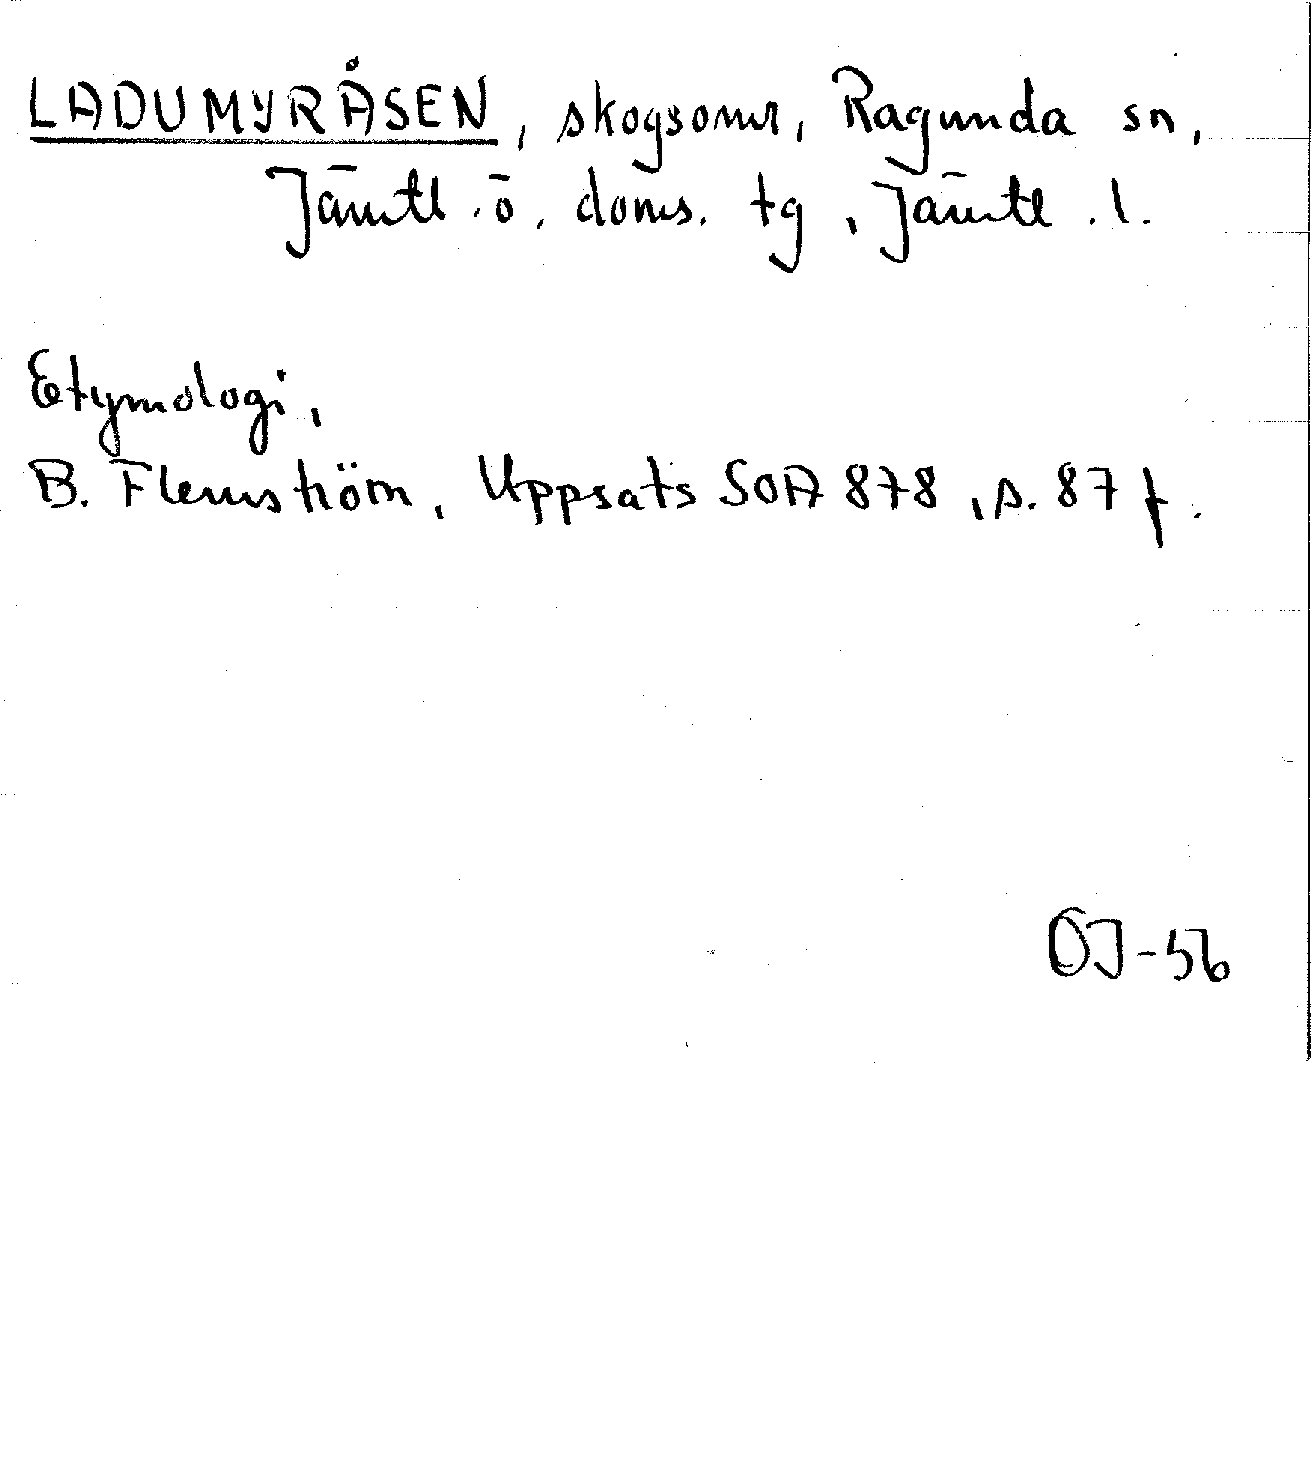 LADUMYRÅSEN, skogsomr, Ragunda sn,
Jämtl. ö. doms. tg, Jämtl. l.
Etymologi,
B. Flemström, Uppsats SOA 878, s. 87 f.
ÖJ-56